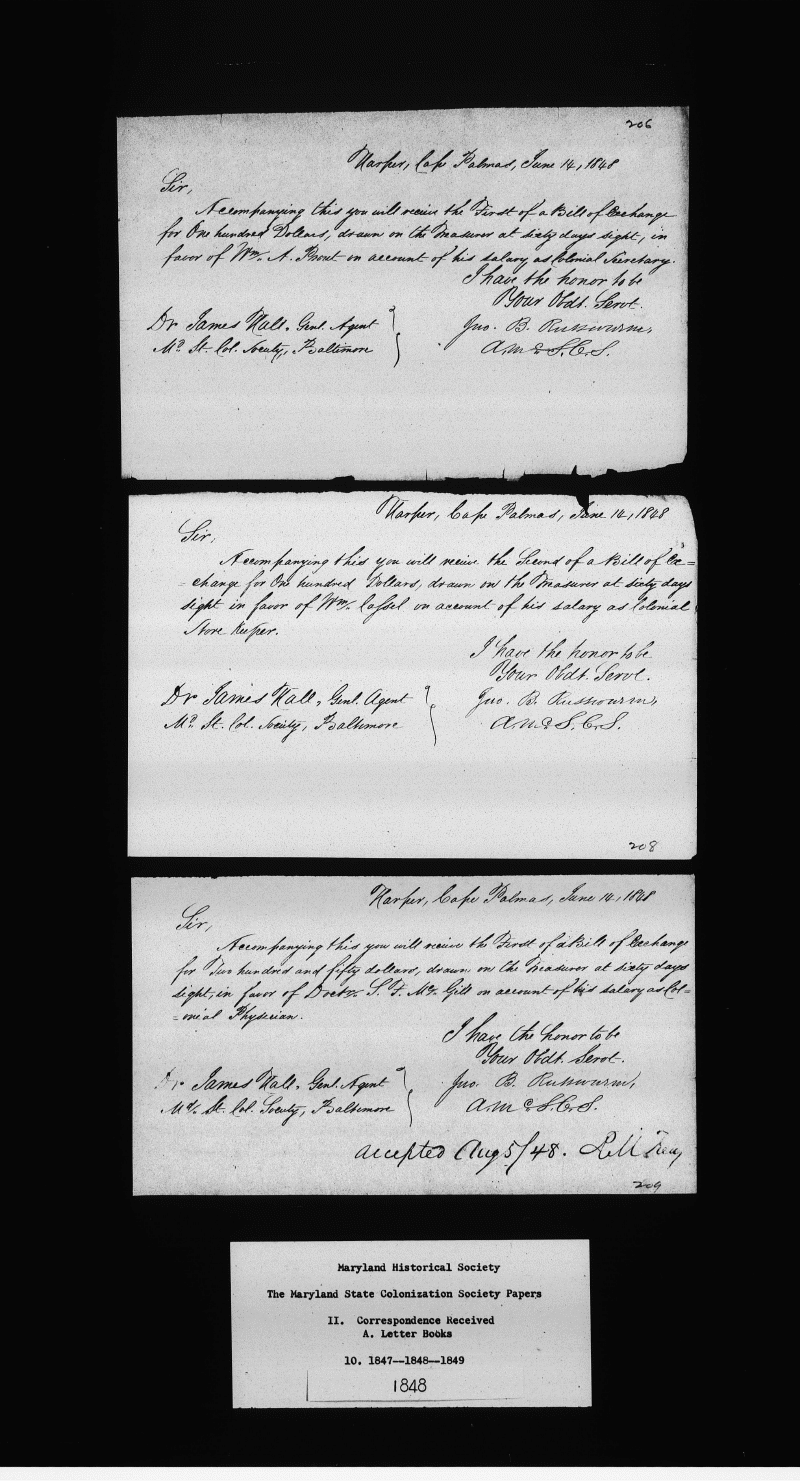 206
Harper, Cape Palmas, June 14, 1848
Sir,
Accompanying this you will receive the First of a Bill of Exchange
for One hundred Dollars, drawn on the Treasurer at sixty days sight, in
favor of Wm. A. Prout on account of his salary as Colonial Secretary.
I have the honor to be
Your Obdt. Servt.
Dr James Hall, Genl. Agent
Jno. B. Russwurm,
Md. St. Col. Society, Baltimore
A. Md. S. C. S.
Harper, Cape Palmas, June 14, 1848
Sir,
Accompanying this you will receive the Second of a Bill of Ex=
=change for One hundred Dollars, drawn on the Treasurer at sixty days
sight in favor of Wm. Cassel on account of his salary as Colonial
Store Keeper.
I have the honor to be
Your Obdt. Servt.
Dr James Hall, Genl. Agent
Jno. B. Russwurm,
Md. St. Col. Society, Baltimore
A. Md. S. C. S.
208
Harper, Cape Palmas, June 14, 1848
Sir,
Accompanying this you will receive the First of a Bill of Exchange
for Two hundred and fifty dollars, drawn on the Treasurer at sixty days
sight, in favor of Doctr. S. F. Mc. Gill on account of his salary as Col=
=onial Physician.
I have the honor to be
Your Obdt. Servt.
Dr James Hall, Genl. Agent
Jno. B. Russwurm,
Md. St. Col. Society, Baltimore
A. Md. S. C. S.
accepted Aug 5/48.
209
Maryland Historical Society
The Maryland State Colonization Society Papers
II. Correspondence Received
A. Letter Books
10. 1847--1848--1849
1848